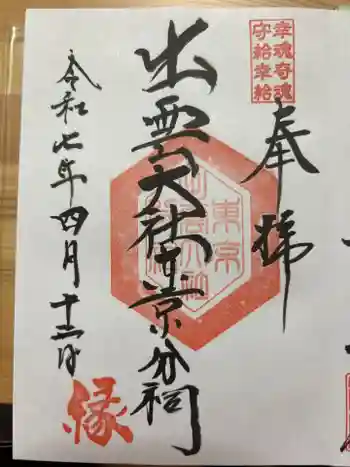 幸魂奇魂
守給幸給
奉拝
出雲大社東京分祠
東京
令和七年四月十二日
縁